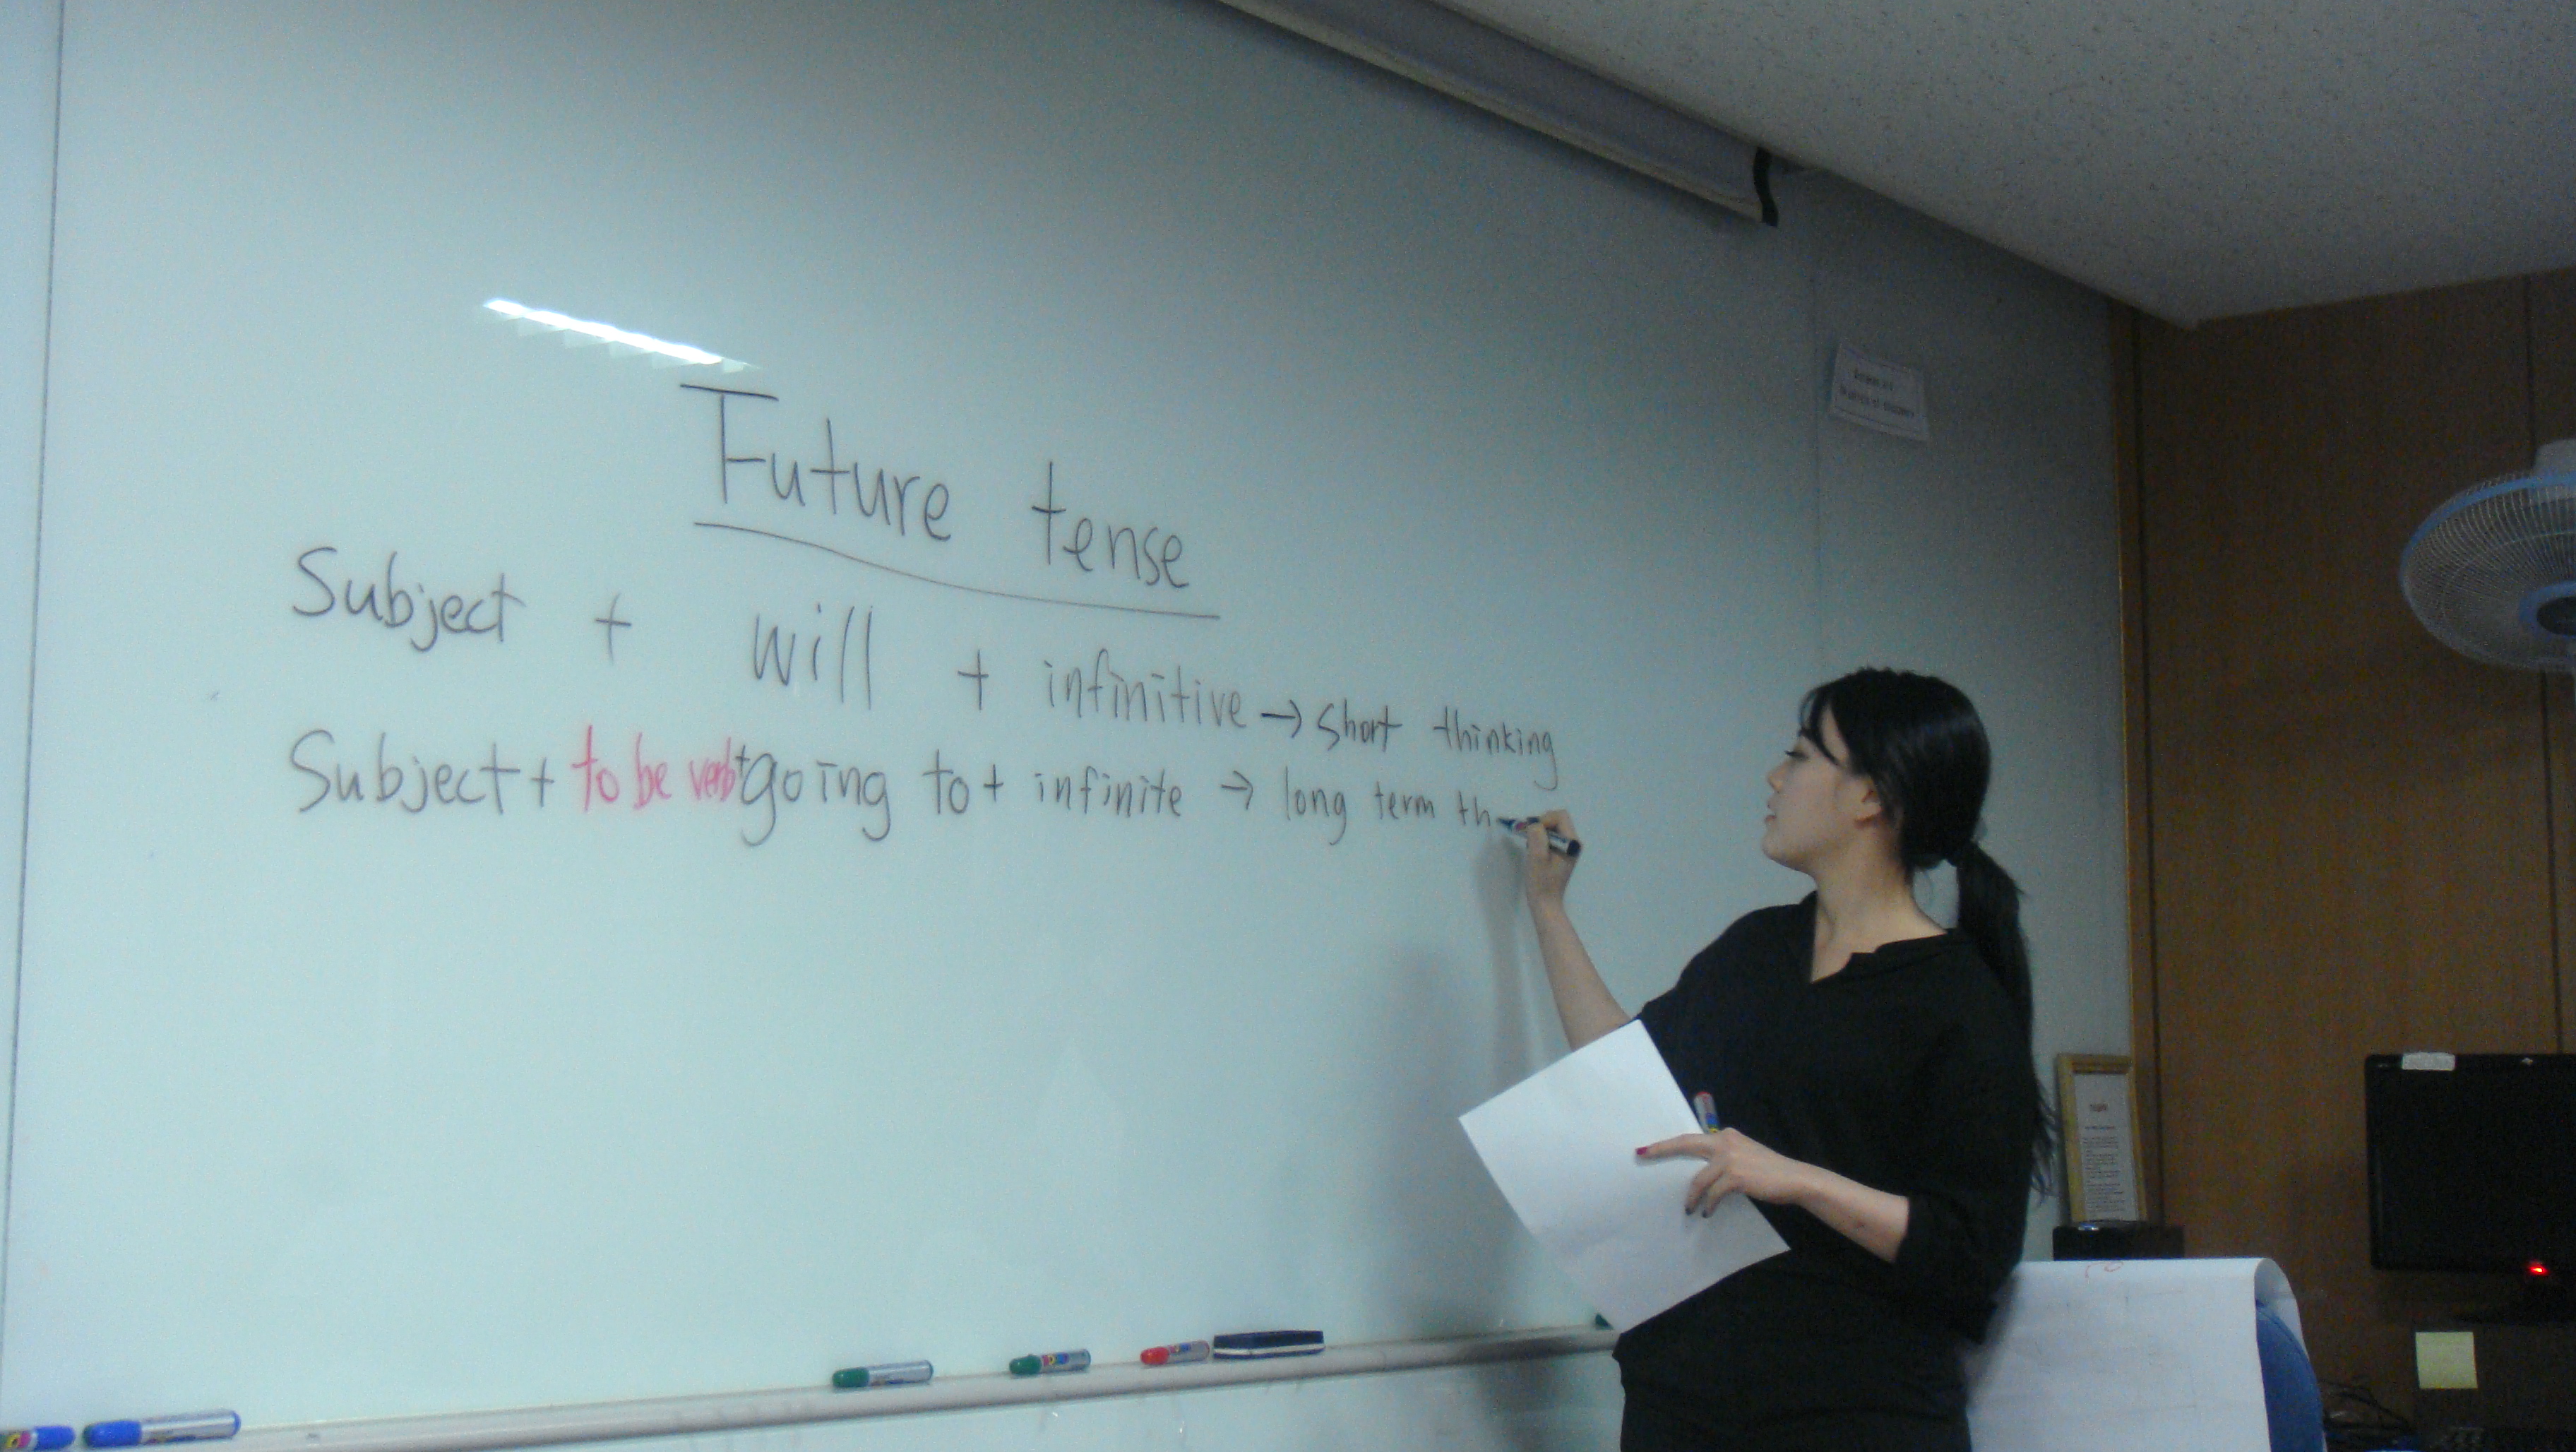 Future tense
Subject + will + infinitive → short thinking
Subject + to be verb + going to + infinite → long term th